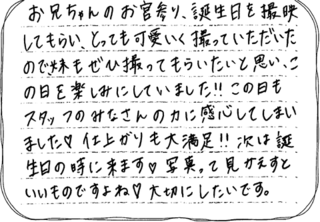 お兄ちゃんのお宮参り、誕生日を撮映
してもらい、とっても可愛いく撮っていただいた
ので妹もぜひ撮ってもらいたいと思い、こ
の日を楽しみにしていました!! この日も
スタッフのみなさんの力に感心してしまい
ました♡ 仕上がりも大満足!! 次は誕
生日の時に来ます♡ 写真って見かえすと
いいものですよね♡ 大切にしたいです。